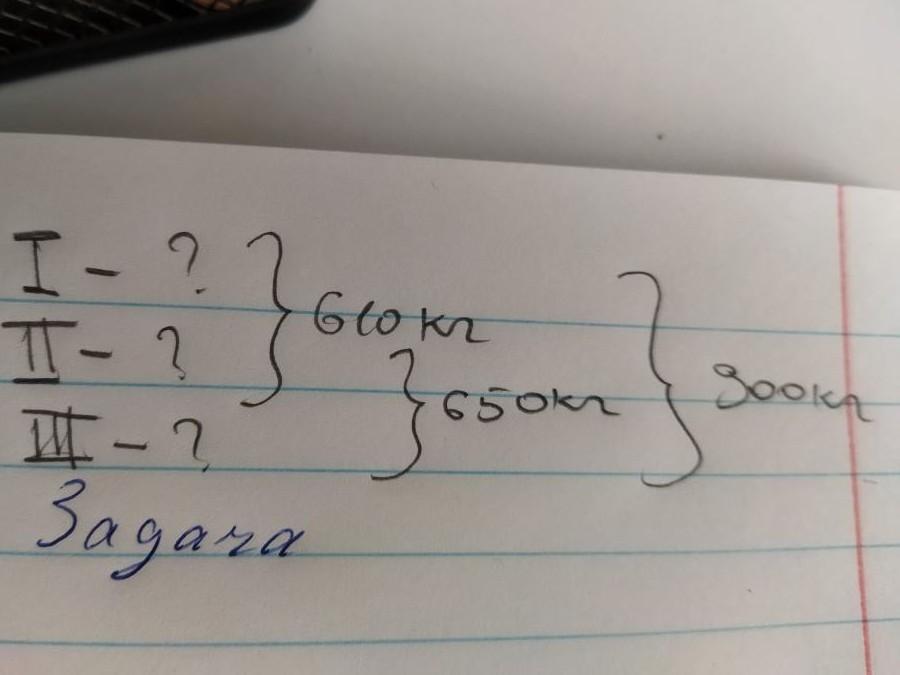 I - ?
II - ? } 610кг
III - ? } 650кг } 900кг
Задача